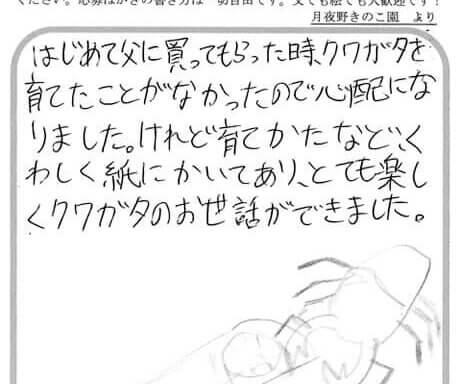 ください。応募はがきの書き方は一切自由です。文でも絵でも大歓迎です！
月夜野きのこ園　より
はじめて父に買ってもらった時、クワガタを
育てたことがなかったので心配にな
りました。けれど育てかたなど、く
わしく紙にかいてあり、とても楽し
くクワガタのお世話ができました。